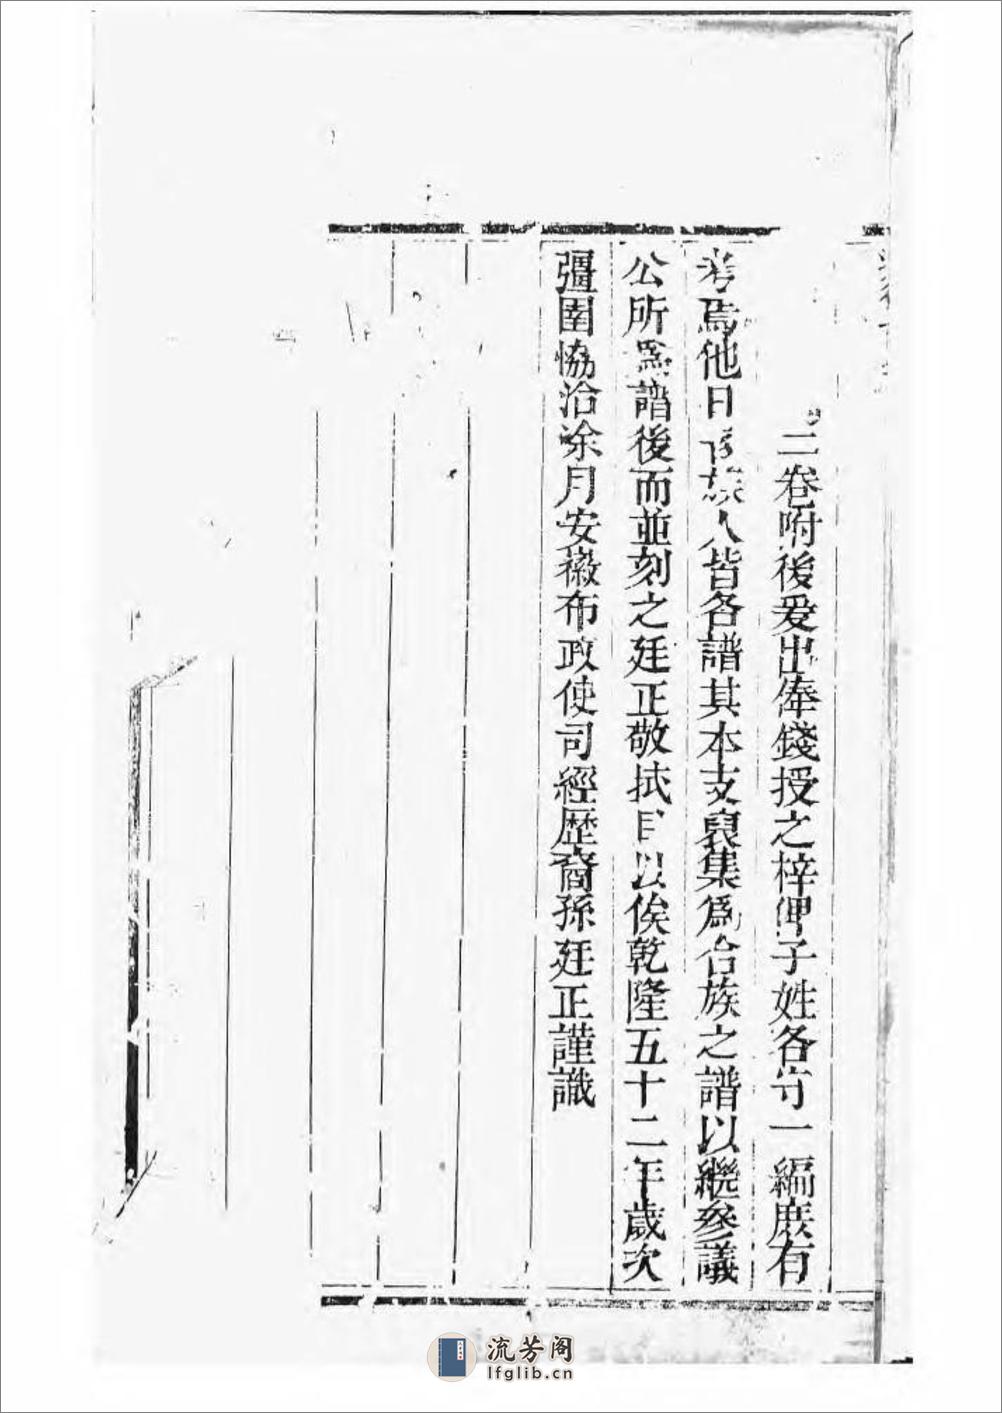 二卷附後爰出俸錢授之梓俾子姓各守一編庶有
考焉他日族人皆各譜其本支裒集爲合族之譜以繼參議
公所爲譜後而並刻之廷正敬拭目以俟乾隆五十二年歲次
彊圉協洽涂月安徽布政使司經歷裔孫廷正謹識
流芳阁
lfglib.cn